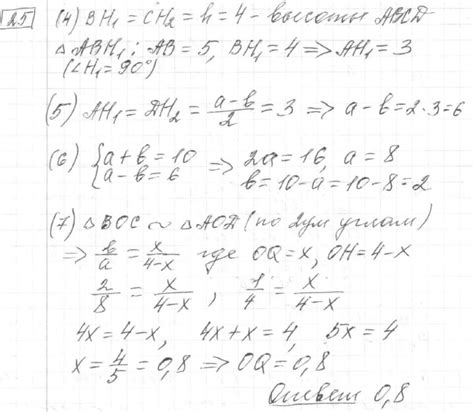 25 (4) BH₁ = CH₂ = h = 4 - высоты ABCD
△ABH₁: AB = 5, BH₁ = 4 ⇒ AH₁ = 3
(∠H₁ = 90°)
(5) AH₁ = DH₂ = (a-b)/2 = 3 ⇒ a-b = 2·3 = 6
(6) { a+b = 10 ⇒ 2a = 16, a = 8
a-b = 6 b = 10-a = 10-8 = 2
(7) △BOC ~ △AOD (по 2ум углам)
⇒ b/a = x/(4-x) где OQ = x, OH = 4-x
2/8 = x/(4-x), 1/4 = x/(4-x)
4x = 4-x, 4x+x = 4, 5x = 4
x = 4/5 = 0,8 ⇒ OQ = 0,8
Ответ 0,8